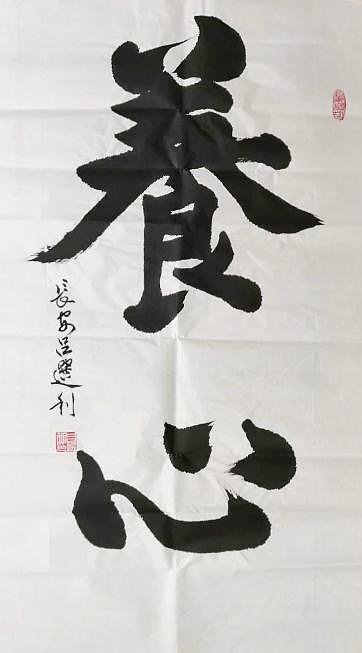 養心
長安呂選利